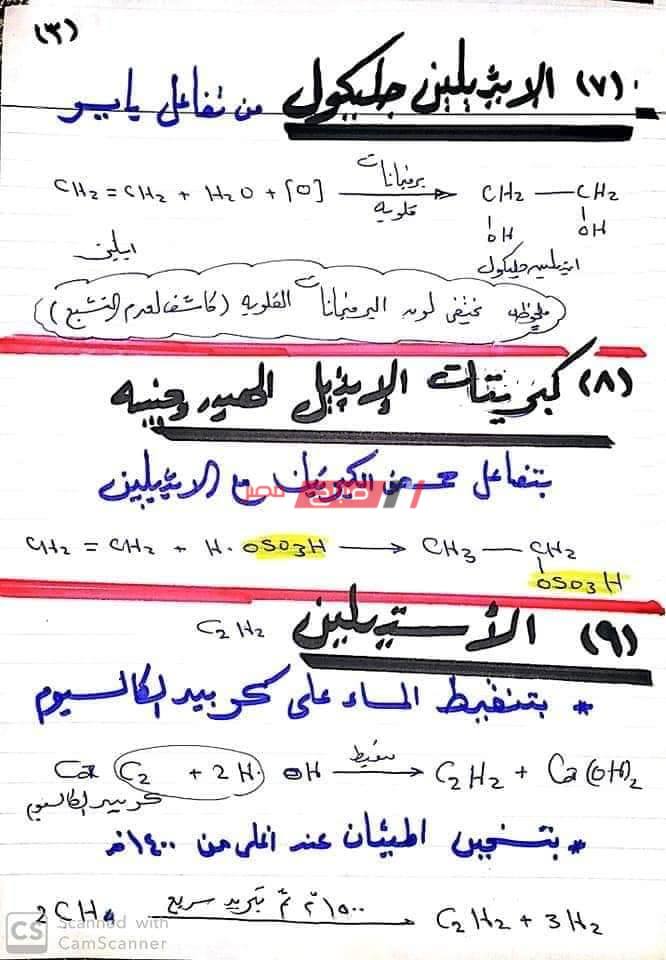 (٣)
(٧) الإيثيلين جليكول من تفاعل باير
CH2 = CH2 + H2O + [O] برمنجانات قلوية → CH2 — CH2
OH OH
ايثيلين جليكول
ملحوظه يختفى لون البرمنجانات القلوية (كاشف لعدم التشبع)
(٨) كبريتات الإيثيل الهيدروجينيه
بتفاعل حمض الكبريتيك مع الايثيلين
CH2 = CH2 + H. OSO3H → CH3 — CH2
OSO3H
(٩) الأستيلين C2H2
* بتنقيط الماء على كربيد الكالسيوم
Ca C2 + 2H. OH تنقيط → C2H2 + Ca(OH)2
كربيد الكالسيوم
* بتسخين الميثان عند اعلى من ١٤٠٠°م
2CH4 ١٥٠٠°م ثم تبريد سريع → C2H2 + 3H2
CS Scanned with
CamScanner